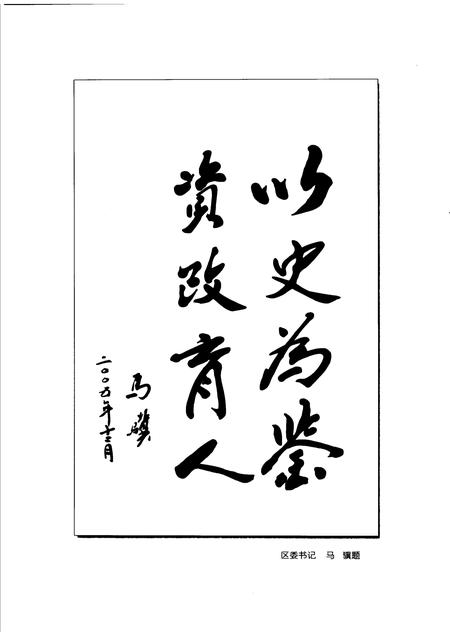 以史為鉴
資政育人
马骥
二〇〇五年十二月
区委书记 马 骥题